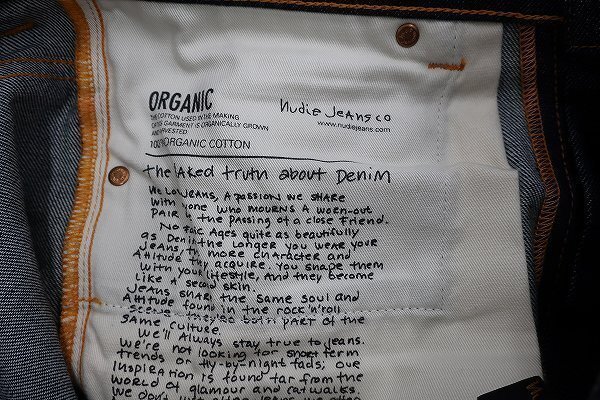 ORGANIC
THE COTTON USED IN THE MAKING
THIS GARMENT IS ORGANICALLY GROWN
HARVESTED
100% ORGANIC COTTON
nudie Jeans co
www.nudiejeans.com
the aked truth about Denim
We Lo Jeans, A passion we SHARE
with yone who MOURNS A worn-out
PAIR the PASSING of A close Friend.
No Fabric Ages quite as beautifully
as Denim. the LONGER you WEAR your
JEANS, the more CHARACTER and
Attitude they ACQUIRE. You SHAPE THEM
with your lifestyle, And they become
like a second SKIN.
Jeans SHARE the same soul and
Attitude found in the rock'n'roll
scene. they're both PART of the
same culture.
We'll Always stay true to jeans.
We're not looking for short term
trends or fly-by-night fads; our
INSPIRATION is found far from the
WORLD of glamour and catwalks.
We don't